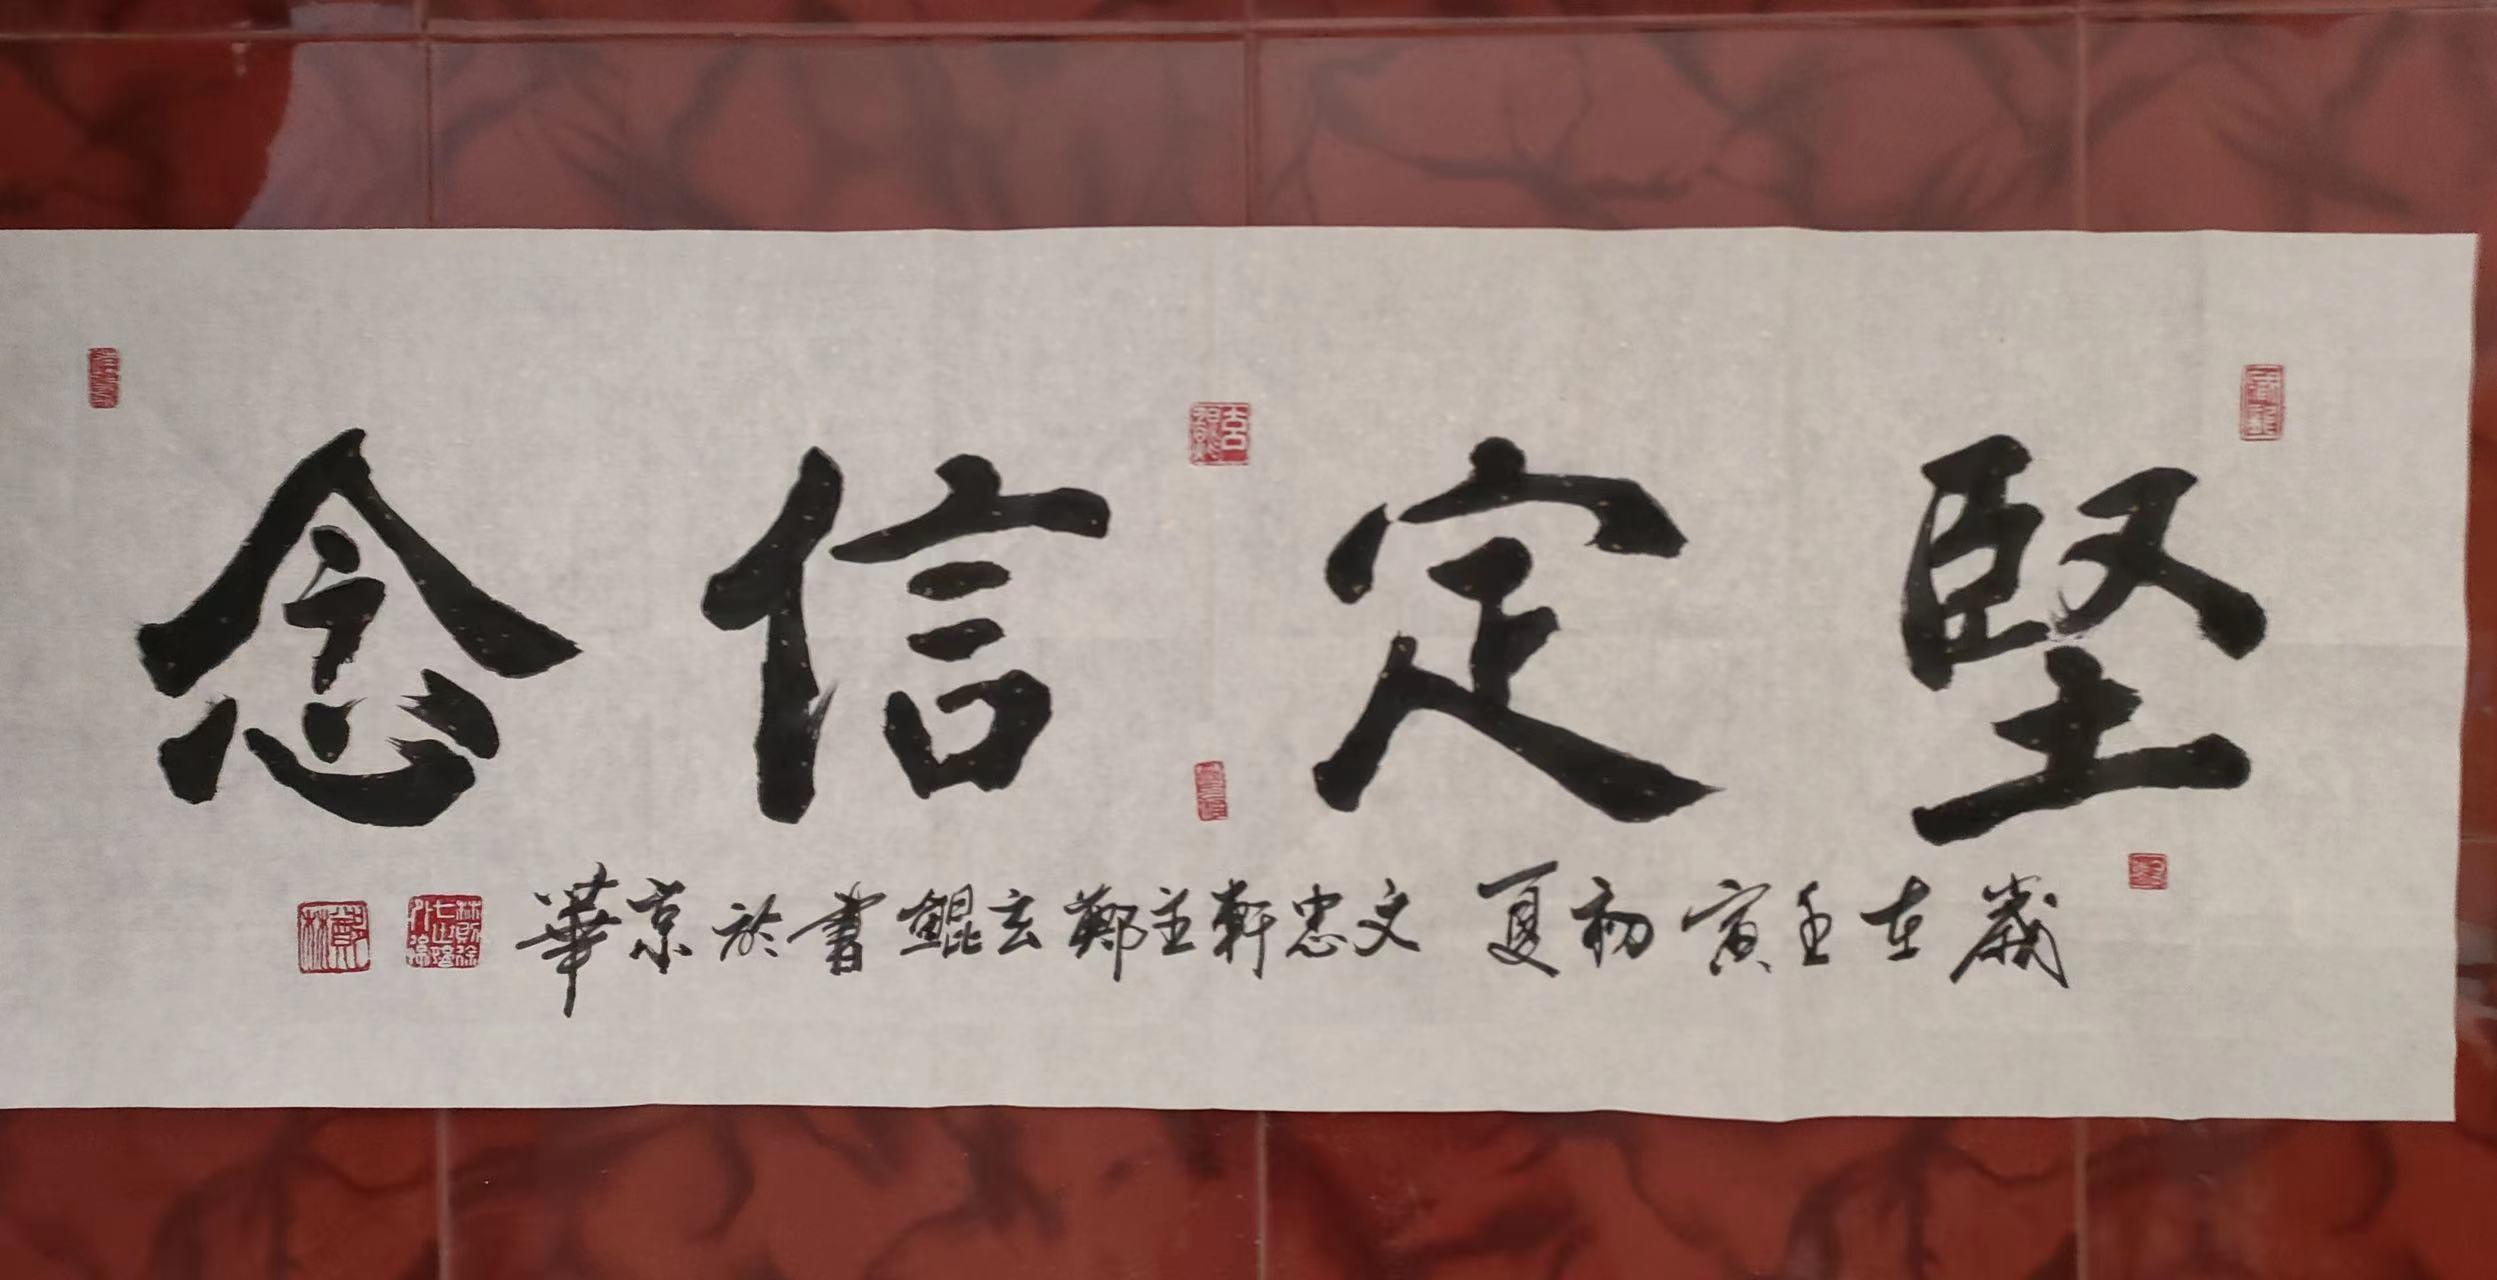 堅定信念
歲在壬寅初夏文忠軒主鄭玄鯤書於京華